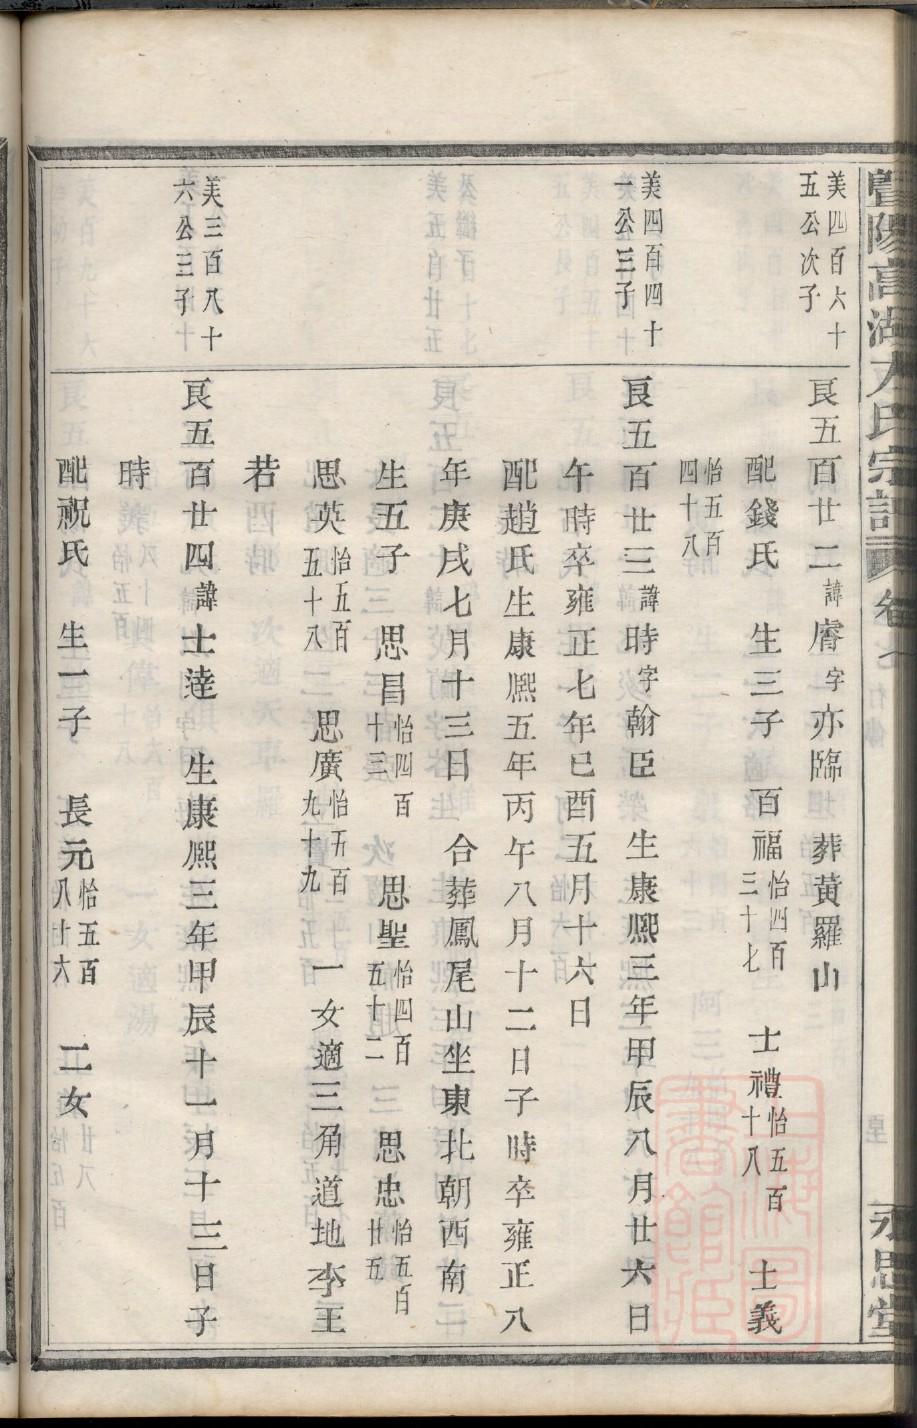 暨陽高湖方氏宗譜 卷七 行傳 永思堂
美四百六十
五公次子
良五百廿二諱膺字亦臨 葬黃羅山
配錢氏 生三子 百福怡四百三十七 士禮怡五百十八 士義
怡五百四十八
美四百四十
一公三子
良五百廿三諱時字翰臣 生康熙三年甲辰八月廿六日
午時卒雍正七年已酉五月十六日
配趙氏生康熙五年丙午八月十二日子時卒雍正八
年庚戌七月十三日 合葬鳳尾山坐東北朝西南
生五子 思昌怡四百十三 思聖怡四百五十二 思忠怡五百廿五
思英怡五百五十八 思廣怡五百九十九 一女適三角道地李王
若
美三百八十
六公三子
良五百廿四諱士達字 生康熙三年甲辰十一月十三日子
時
配祝氏 生一子 長元怡五百八十六 二女